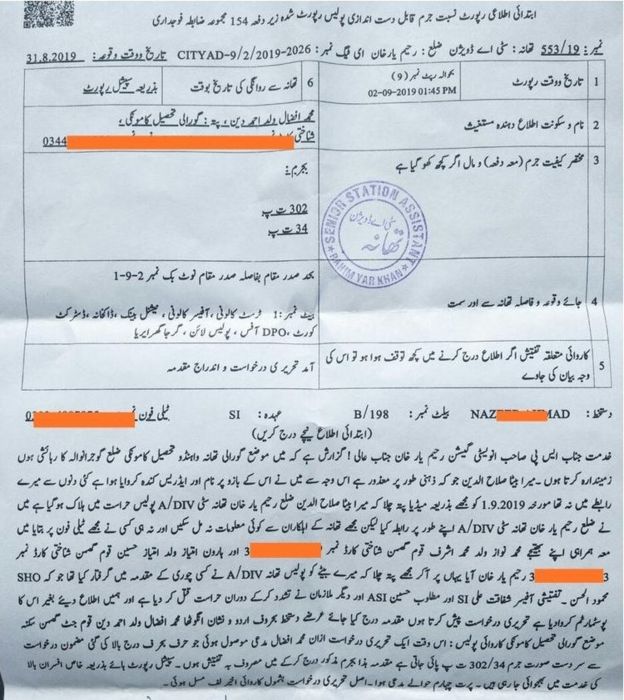 ابتدائی اطلاعی رپورٹ نسبت جرم قابل دست اندازی پولیس رپورٹ شدہ زیر دفعہ 154 مجموعہ ضابطہ فوجداری
نمبر: 553/19 تھانہ: سٹی اے ڈویژن ضلع: رحیم یار خان ای ٹیگ نمبر: CITYAD-9/2/2019-2026 تاریخ و وقت وقوعہ: 31.8.2019
1 تاریخ و وقت رپورٹ بحوالہ رپٹ نمبر (9) 02-09-2019 01:45 PM 6 تھانہ سے روانگی کی تاریخ بوقت بذریعہ سپیشل رپورٹ
2 نام و سکونت اطلاع دہندہ مستغیث محمد افضال ولد احمد دین، پتہ: گورالی تحصیل کامونکی،
شناختی کارڈ نمبر
0344
3 مختصر کیفیت جرم (معہ دفعہ) و مال اگر کچھ کھو گیا ہے بجرم:
302 ت پ
34 ت پ
SENIOR STATION ASSISTANT
تھانہ سٹی اے ڈویژن
RAHIM YAR KHAN
4 جائے وقوعہ و فاصلہ تھانہ سے اور سمت بحد صدر مقام بفاصلہ صدر مقام نوٹ بک نمبر 2-9-1
بیٹ نمبر: 1 ٹرسٹ کالونی، آفیسر کالونی، نیشنل بینک، ڈاکخانہ، ڈسٹرکٹ
کورٹ، DPO آفس، پولیس لائن، گرجا گھر ایریا
5 کاروائی متعلقہ تفتیش اگر اطلاع درج کرنے میں کچھ توقف ہوا ہو تو اس کی
وجہ بیان کی جاوے آمد تحریری درخواست و اندراج مقدمہ
دستخط: NAZ MAD بیلٹ نمبر: 198/B عہدہ: SI ٹیلی فون نمبر
(ابتدائی اطلاع نیچے درج کریں)
خدمت جناب ایس پی صاحب انویسٹی گیشن رحیم یار خان جناب عالی! گزارش ہے کہ میں موضع گورالی تھانہ واہنڈو تحصیل کامونکی ضلع گوجرانوالہ کا رہائشی ہوں
زمیندارہ کرتا ہوں۔ میرا بیٹا صلاح الدین جو کہ ذہنی طور پر معذور ہے اس وجہ سے میں نے اس کے بازو پر نام اور ایڈریس کندہ کروایا ہوا ہے کئی دنوں سے میرے
رابطے میں نہ تھا مورخہ 1.9.2019 کو مجھے بذریعہ میڈیا پتہ چلا کہ میرا بیٹا صلاح الدین ضلع رحیم یار خان تھانہ سٹی A/DIV پولیس حراست میں ہلاک ہو گیا ہے میں
نے ضلع رحیم یار خان تھانہ سٹی A/DIV اپنے طور پر رابطہ کیا لیکن مجھے تھانہ کے اہلکاران سے کوئی معلومات نہ مل سکیں اور نہ ہی کسی نے مجھے ٹیلی فون پر بتایا میں
معہ ہمراہی اپنے بھتیجے محمد نواز ولد محمد اشرف قوم گھمسن شناختی کارڈ نمبر 3 اور ہارون امتیاز ولد امتیاز حسین قوم گھمسن شناختی کارڈ نمبر
3 3 رحیم یار خان آیا یہاں پر آکر مجھے پتہ چلا کہ میرے بیٹے کو پولیس تھانہ A/DIV نے کسی چوری کے مقدمہ میں گرفتار کیا تھا جو کہ SHO
محمود الحسن۔ تفتیشی آفیسر شفاقت علی SI اور مطلوب حسین ASI اور دیگر ملازمان نے تشدد کر کے دوران حراست قتل کر دیا ہے اور ہمیں اطلاع دیئے بغیر اس کا
پوسٹمارٹم کروا دیا ہے درخواست پیش کرتا ہوں مقدمہ درج کیا جائے عرضے دستخط بحروف اردو و نشان انگوٹھا محمد افضال ولد احمد دین قوم جٹ گھمسن سکنہ
موضع گورالی تحصیل کامونکی کاروائی پولیس: اس وقت ایک تحریری درخواست ازاں محمد افضال مدعی موصول ہوئی جو حرف بحرف درج بالا کی گئی مضمون درخواست
سے سردست صورت جرم 302/34 ت پ پائی جاتی ہے مقدمہ ہذا بجرم مذکور درج کر کے میں مصروف بہ تفتیش ہوں۔ سپیشل رپورٹ ہائے بذریعہ خاص افسران بالا
کی خدمت میں بھجوائی جا رہی ہیں۔ پرت چہارم حوالے مدعی ہوا۔ اصل تحریری درخواست بشمول کاروائی اخیر لف مسل ہوئی۔